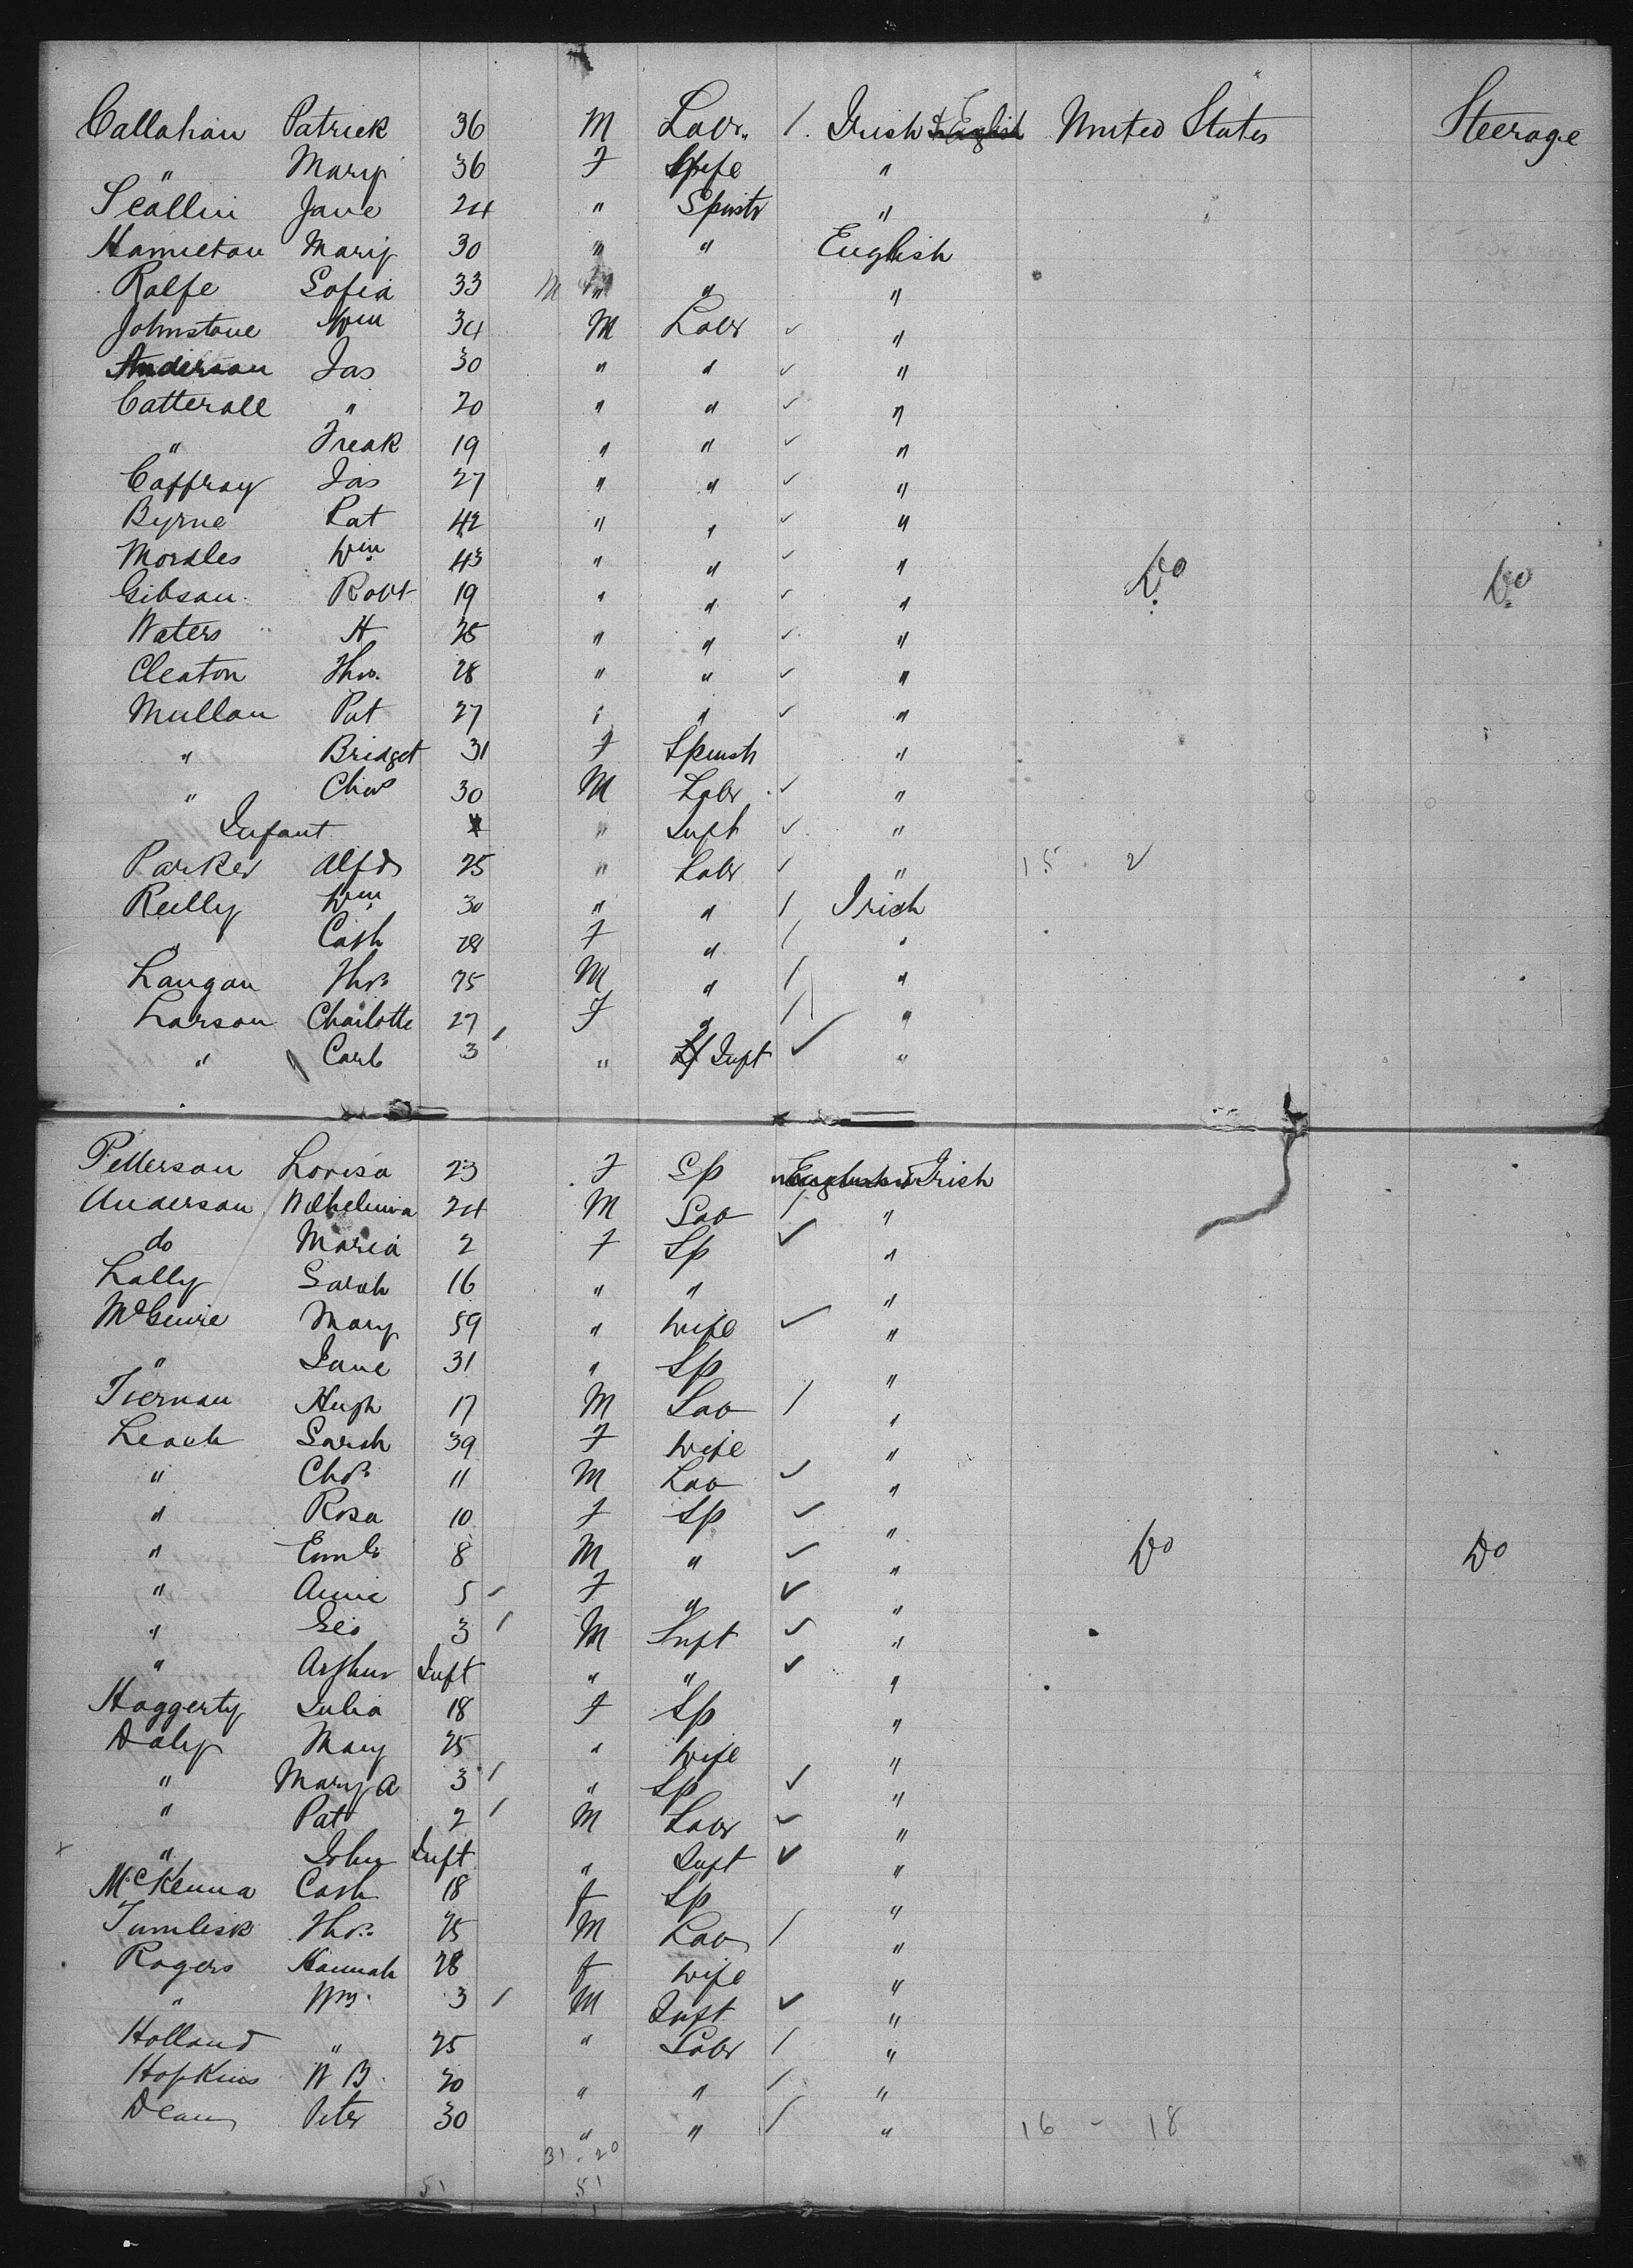 Callahan Patrick 36 M Labr. / Irish & English United States Steerage
" Mary 36 F Wife "
Scallin Jane 24 " Spinstr "
Hamilton Mary 30 " " English
Rolfe Sofia 33 M " " "
Johnstone Wm 34 M Labr ✓ "
Anderson Jas 30 " " ✓ "
Catterall " 20 " " ✓ "
" Freak 19 " " ✓ "
Caffray Jas 27 " " ✓ "
Byrne Pat 42 " " ✓ "
Morales Wm 43 " " ✓ " Do Do
Gibson Robt 19 " " ✓ "
Waters H 25 " " ✓ "
Cleaton Thos. 28 " " ✓ "
Mullan Pat 27 " " ✓ "
" Bridget 31 F Spinstr "
" Chas 30 M Labr ✓ "
Infant " Inft ✓ "
Parker Alfd 25 " Labr ✓ " 15 2
Reilly Wm 30 " " / Irish
" Cath 28 F " / "
Langan Thos 25 M " / "
Larson Charlotte 27 / F " / "
" Carl 3 " Inft ✓ "
Petterson Lovisa 23 F Sp English & Irish
Anderson Wilhelmina 24 M Lab / "
do Maria 2 F Sp ✓ "
Lally Sarah 16 " " "
McGuire Mary 59 " Wife ✓ "
" Jane 31 " Sp "
Tiernan Hugh 17 M Lab / "
Leach Sarah 39 F Wife "
" Chas. 11 M Lab ✓ "
" Rosa 10 F Sp ✓ "
" Eml. 8 M " ✓ " Do Do
" Annie 5 / F " ✓ "
" Geo 3 / M Inft ✓ "
" Arthur Inft " " ✓ "
Haggerty Julia 18 F Sp "
Daly Mary 25 " Wife "
" Mary A 3 / " Sp ✓ "
" Pat 2 / M Labr ✓ "
" John Inft " Inft ✓ "
McKenna Cath 18 F Sp "
Tumlisk Thos. 25 M Lab / "
Rogers Hannah 28 F Wife "
" Wm. 3 / M Inft ✓ "
Holland " 25 " Labr / "
Hopkins W B. 20 " " / "
Dean Peter 30 " " / " 16 - 18
31 . 20
51 51